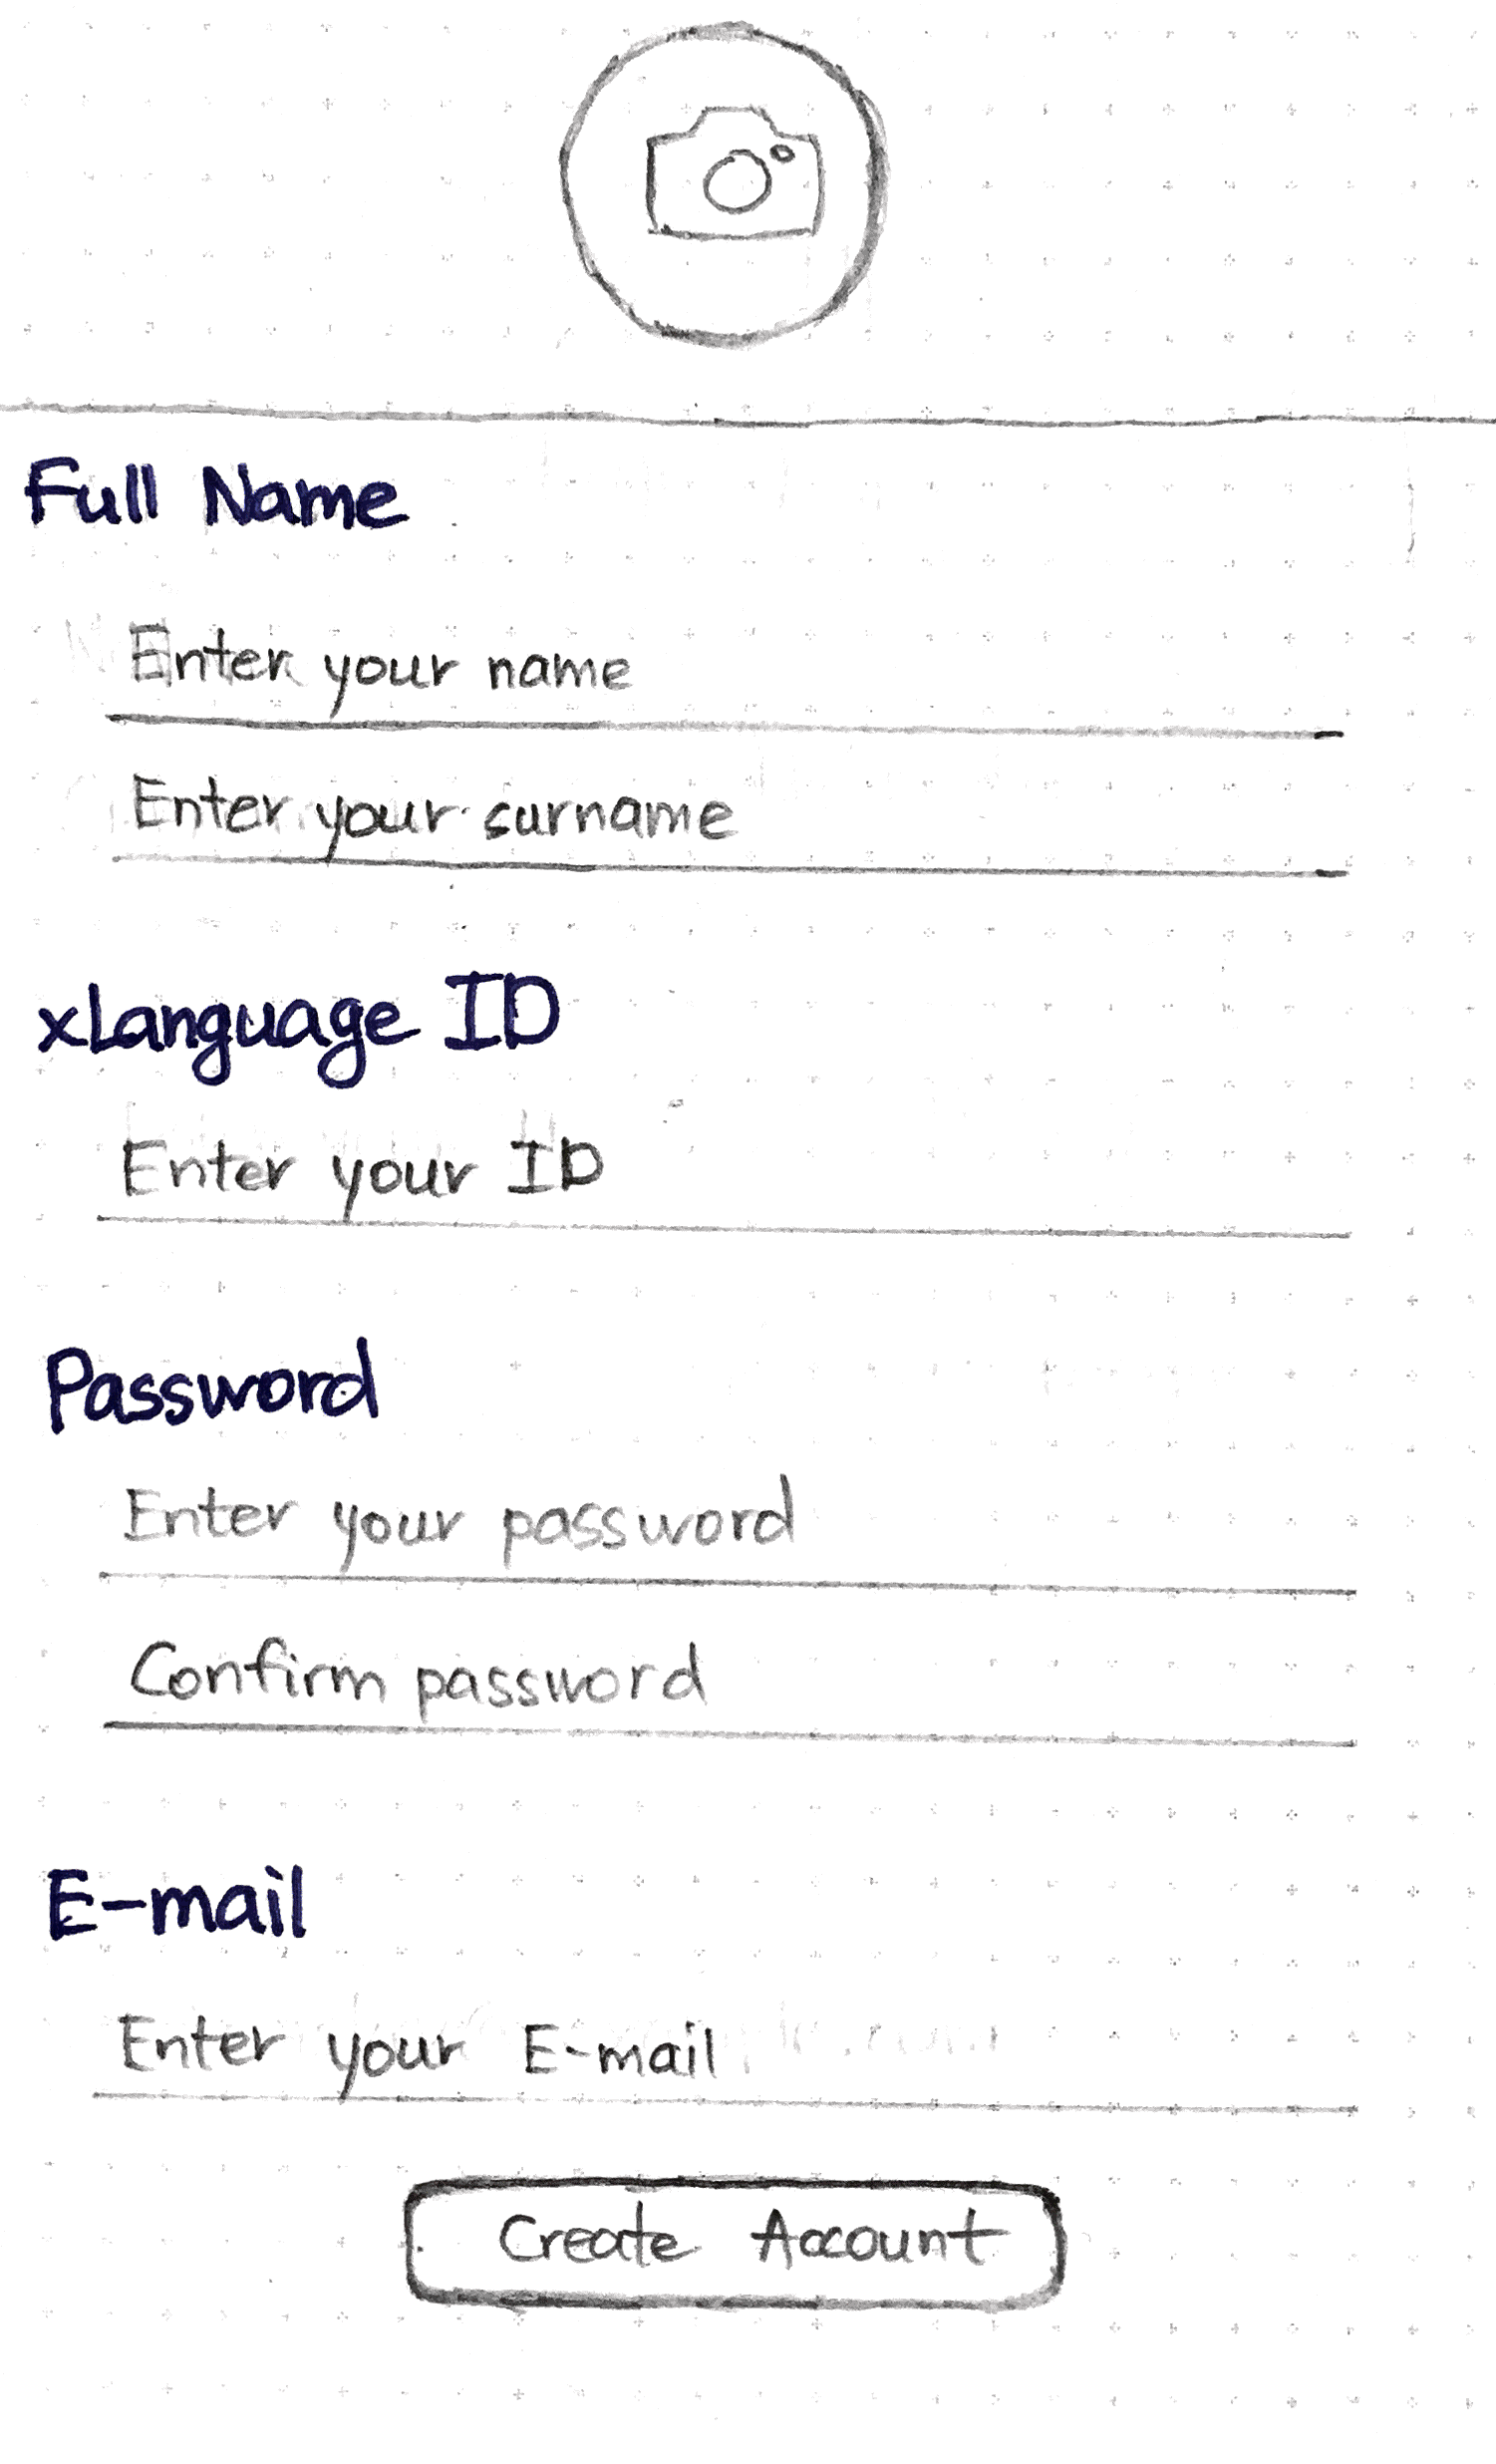 Full Name
Enter your name
Enter your surname
xLanguage ID
Enter your ID
Password
Enter your password
Confirm password
E-mail
Enter your E-mail
Create Account